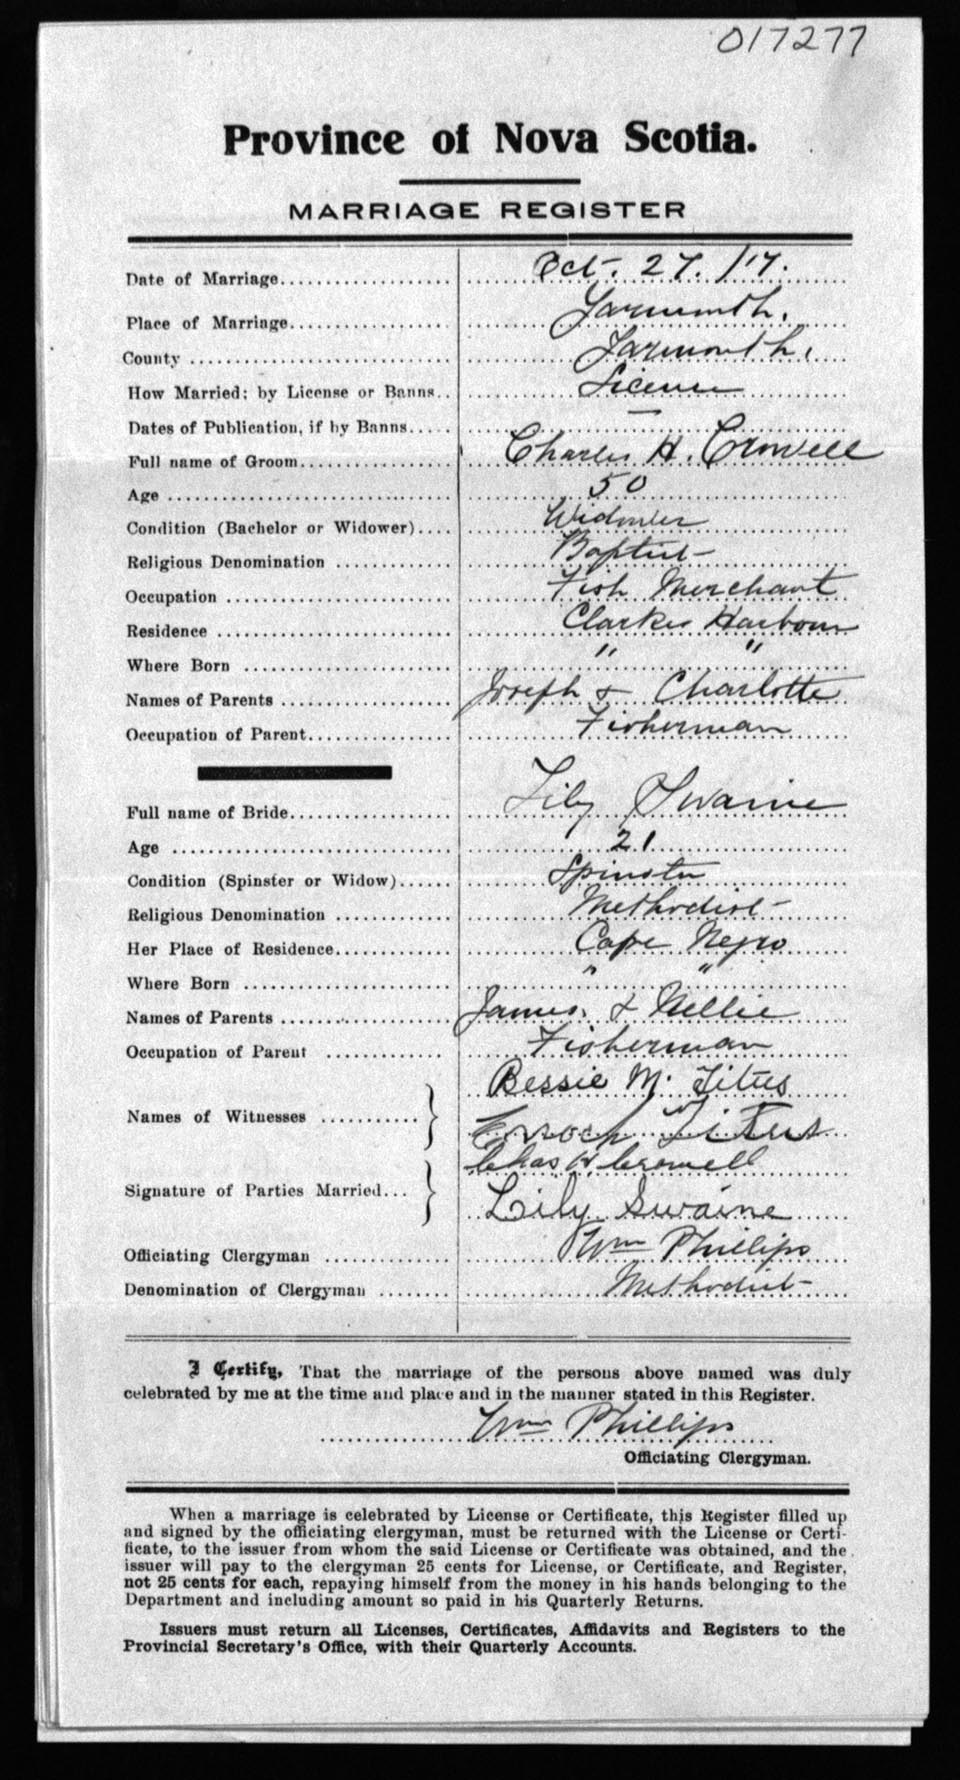 017277
Province of Nova Scotia.
MARRIAGE REGISTER
Date of Marriage................... Oct. 27. /17.
Place of Marriage................. Yarmouth.
County ........................... Yarmouth.
How Married; by License or Banns.. License
Dates of Publication, if by Banns..... —
Full name of Groom................ Charles H. Crowell
Age .............................. 50
Condition (Bachelor or Widower).... Widower
Religious Denomination ............ Baptist
Occupation ....................... Fish Merchant
Residence ........................ Clarkes Harbour
Where Born ....................... " "
Names of Parents ................. Joseph & Charlotte
Occupation of Parent.............. Fisherman
Full name of Bride................ Lily Swaine
Age .............................. 21
Condition (Spinster or Widow)...... Spinster
Religious Denomination ............ Methodist
Her Place of Residence............ Cape Negro
Where Born ....................... " "
Names of Parents ................. James & Nellie
Occupation of Parent ............. Fisherman
Bessie M. Titus
Names of Witnesses .......... Enoch Titus
Chas H Crowell
Signature of Parties Married...
Lily Swaine
Officiating Clergyman ............. Wm Phillips
Denomination of Clergyman ........ Methodist
I Certify, That the marriage of the persons above named was duly
celebrated by me at the time and place and in the manner stated in this Register.
Wm Phillips
Officiating Clergyman.
When a marriage is celebrated by License or Certificate, this Register filled up
and signed by the officiating clergyman, must be returned with the License or Certi-
ficate, to the issuer from whom the said License or Certificate was obtained, and the
issuer will pay to the clergyman 25 cents for License, or Certificate, and Register,
not 25 cents for each, repaying himself from the money in his hands belonging to the
Department and including amount so paid in his Quarterly Returns.
Issuers must return all Licenses, Certificates, Affidavits and Registers to the
Provincial Secretary's Office, with their Quarterly Accounts.